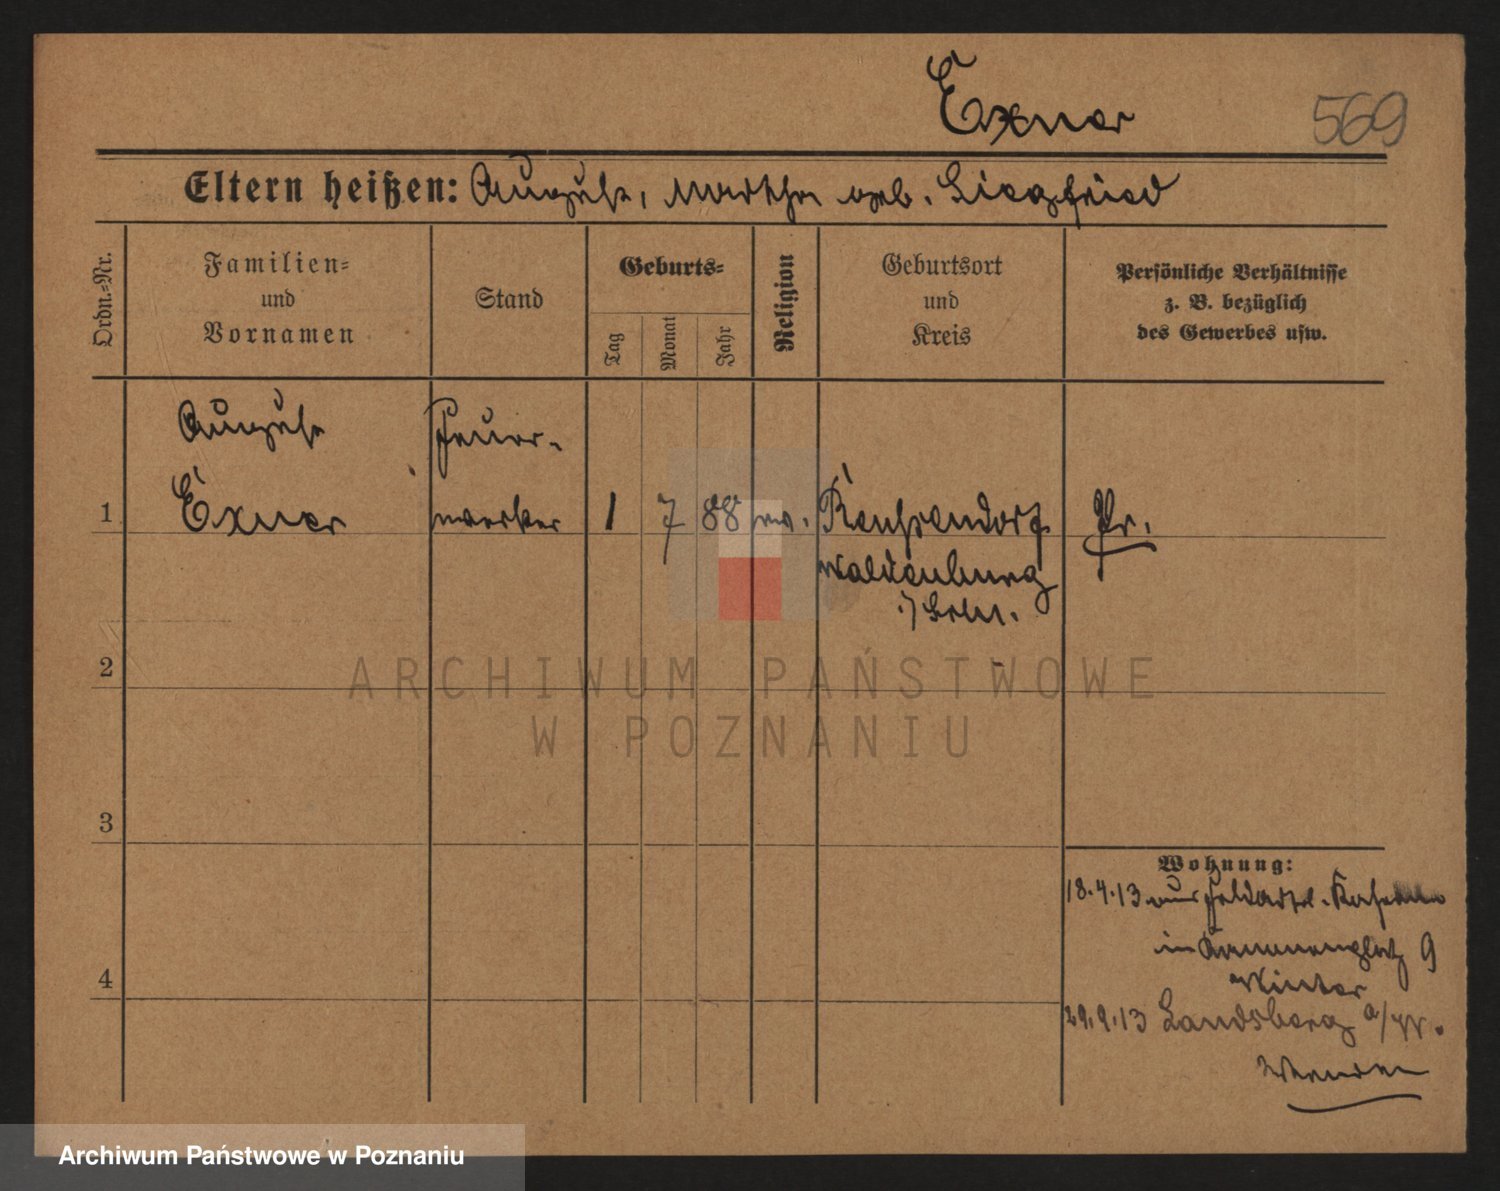 Exner
569
Eltern heißen: August, Martha geb. Siegfried
Ordn.-Nr.
Familien-
und
Vornamen
Stand
Geburts-
Tag
Monat
Jahr
Religion
Geburtsort
und
Kreis
Persönliche Verhältnisse
z. B. bezüglich
des Gewerbes usw.
August
Feuer-
1
Exner
werker
1
7
88
ev.
Reußendorf
Pr.
Waldenburg
i/Schl.
2
3
Wohnung:
18.4.13
in Kanonenplatz 9
4
Winter
29.9.13 Landsberg a/W.
ARCHIWUM PAŃSTWOWE
W POZNANIU
Archiwum Państwowe w Poznaniu